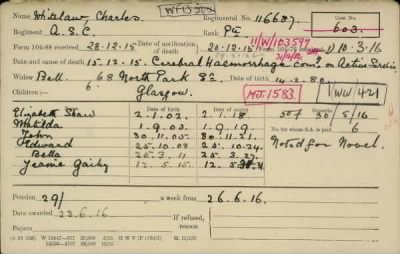 Name Whitelaw, Charles. Regimental No. 11668?
Regiment A. S. C. Rank Pte Case No. 603.
Form 104-88 received 28-12-15 Date of notification of death 20-12-15 11/W/103597 10.3.16
Date and cause of death 15.12.15. Cerebral Haemorrhage. Com. on Active Service
Widow Bell. 68 North Park St. 14-2-80
Children:— 6 Glasgow. MJ.1583. 1 WW 421
Date of birth Date of expiry
Elizabeth Shaw 2.1.02. 2.1.18.
Matilda 1.9.03. 1.9.19.
John 30.11.05. 30.11.21.
Edward 25.10.08 25.10.24.
Bella 25.3.11 25.3.27.
Jeanie 12.5.15
50f 30/5/16
No. for whom S.A. is paid 6
Noted for Novel.
Pension 29/ a week from 26.6.16.
Date awarded 23.6.16. If refused, reason
Papers